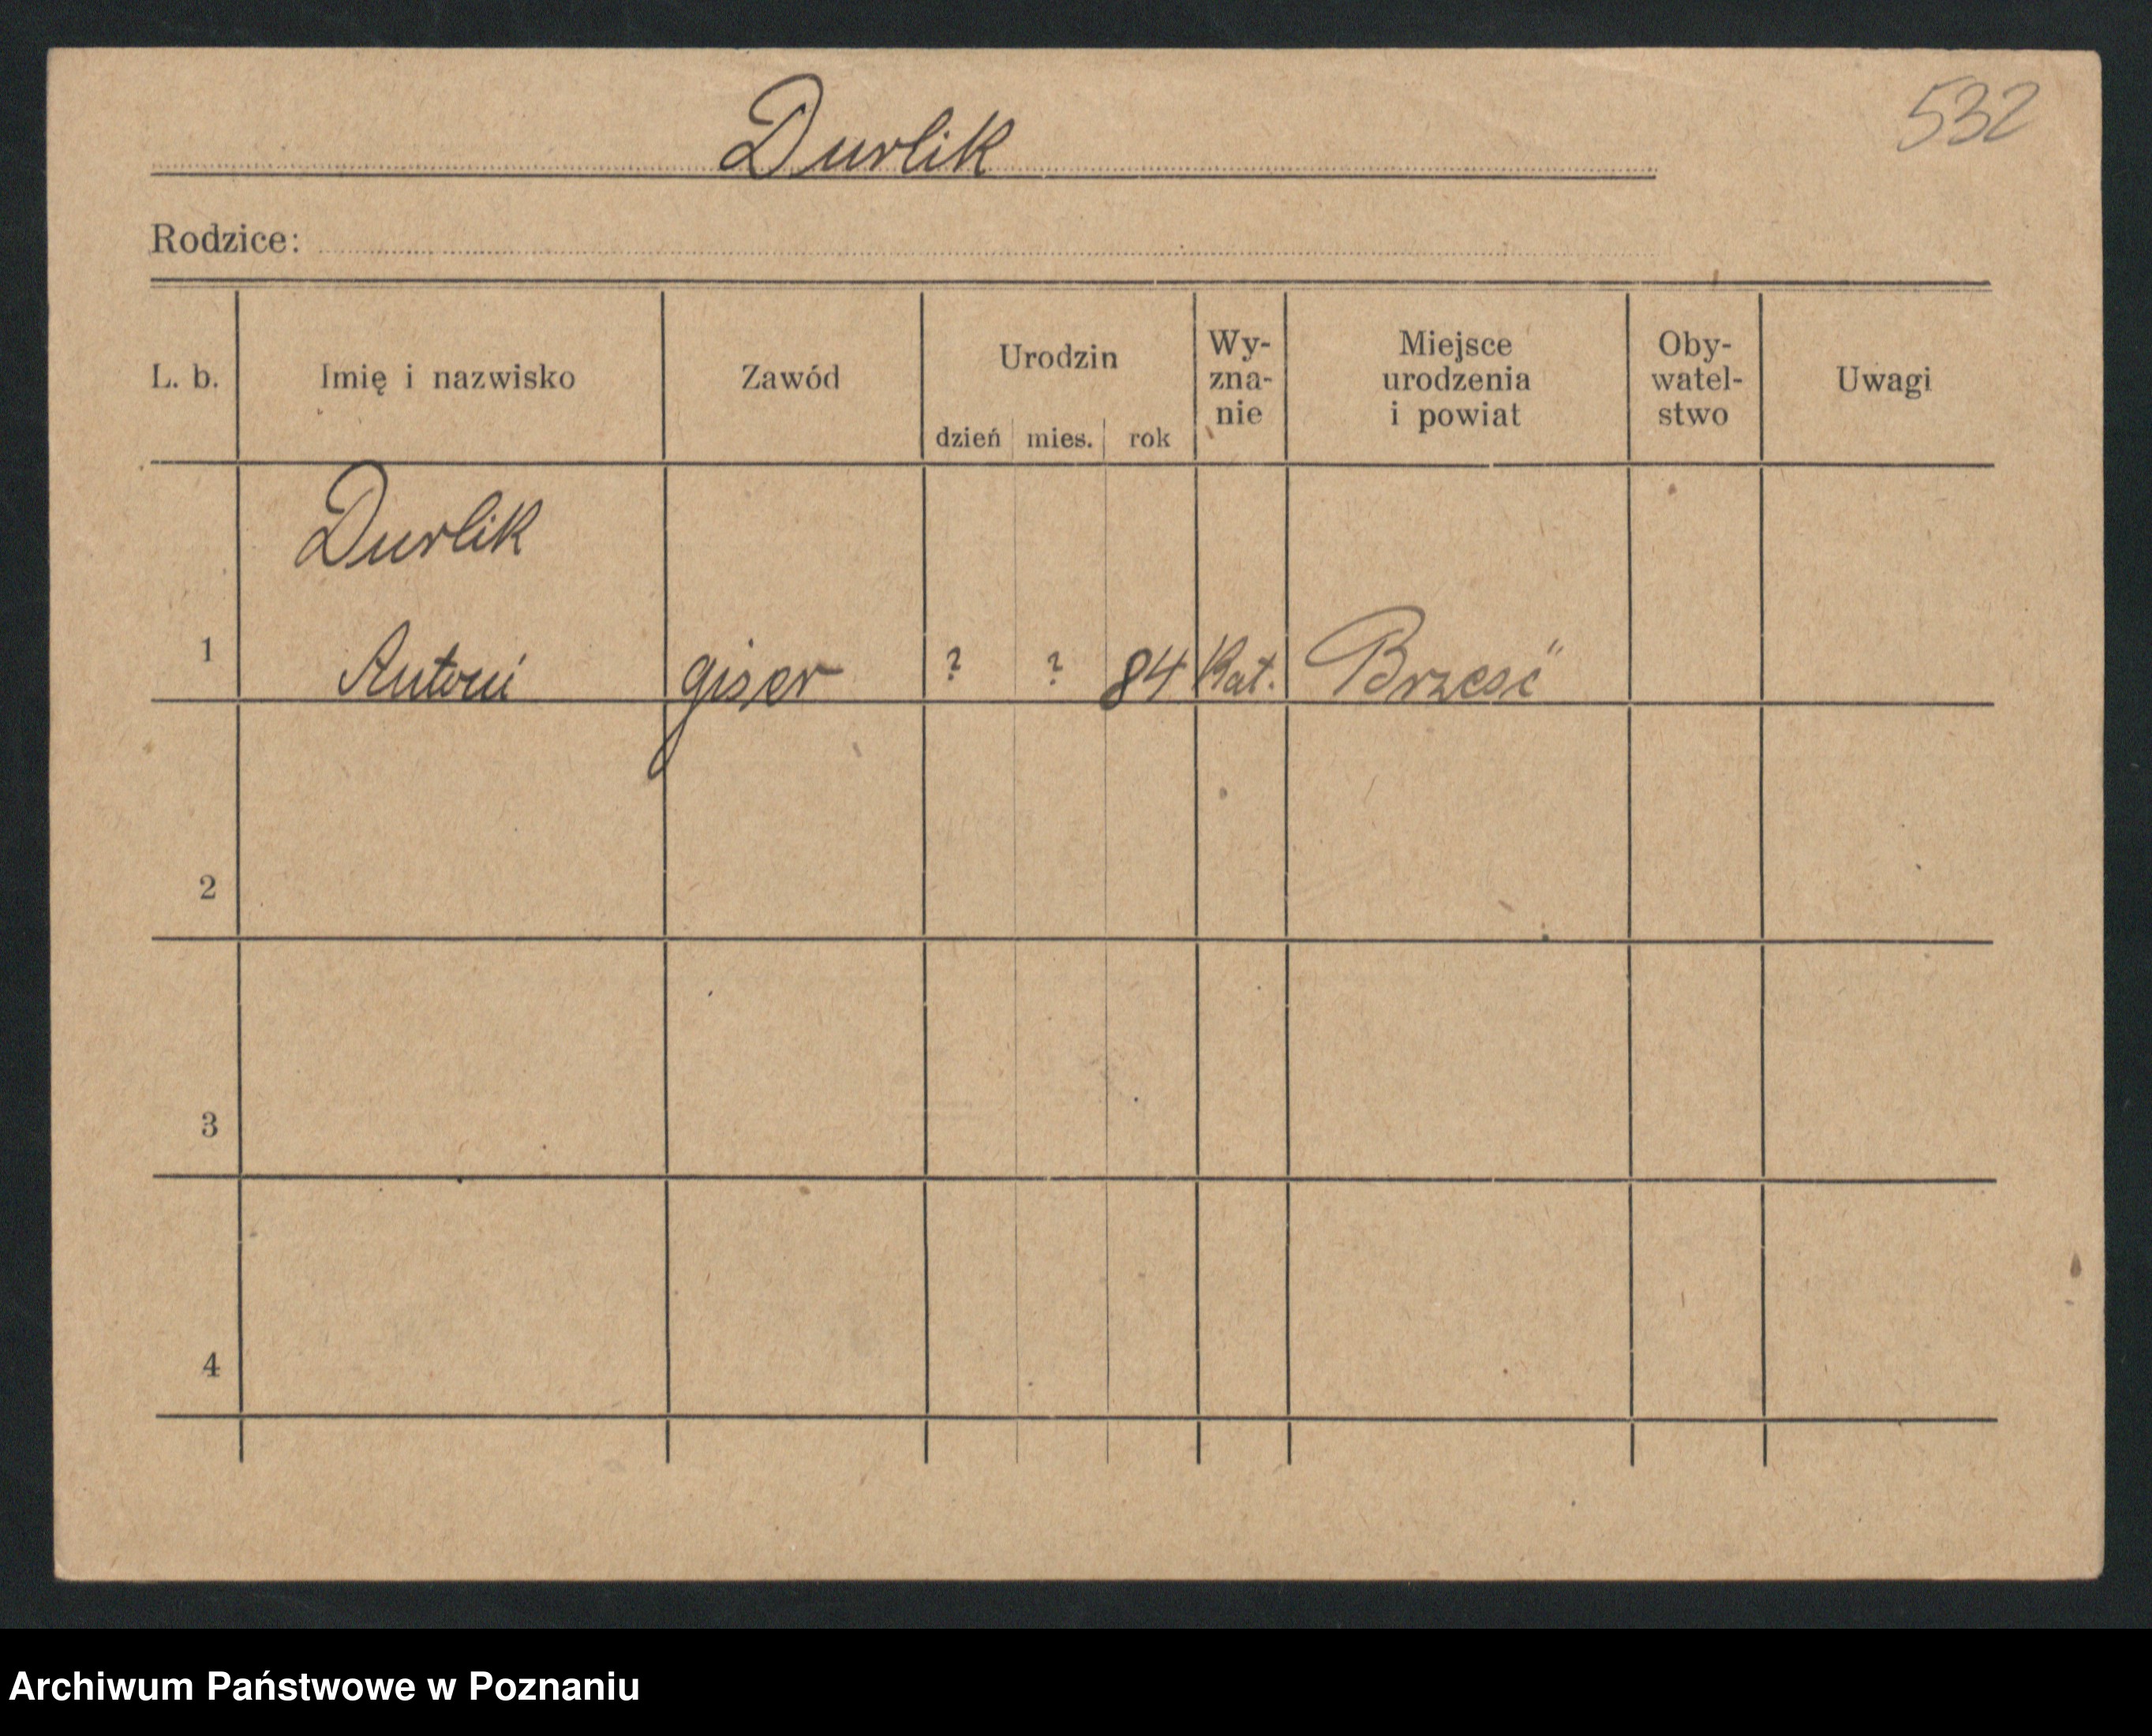 532
Durlik
Rodzice:
L. b.
Imię i nazwisko
Zawód
Urodzin
dzień mies. rok
Wy-
zna-
nie
Miejsce
urodzenia
i powiat
Oby-
watel-
stwo
Uwagi
Durlik
1 Antoni giser ? ? 84 Kat. Brześć
2
3
4
Archiwum Państwowe w Poznaniu